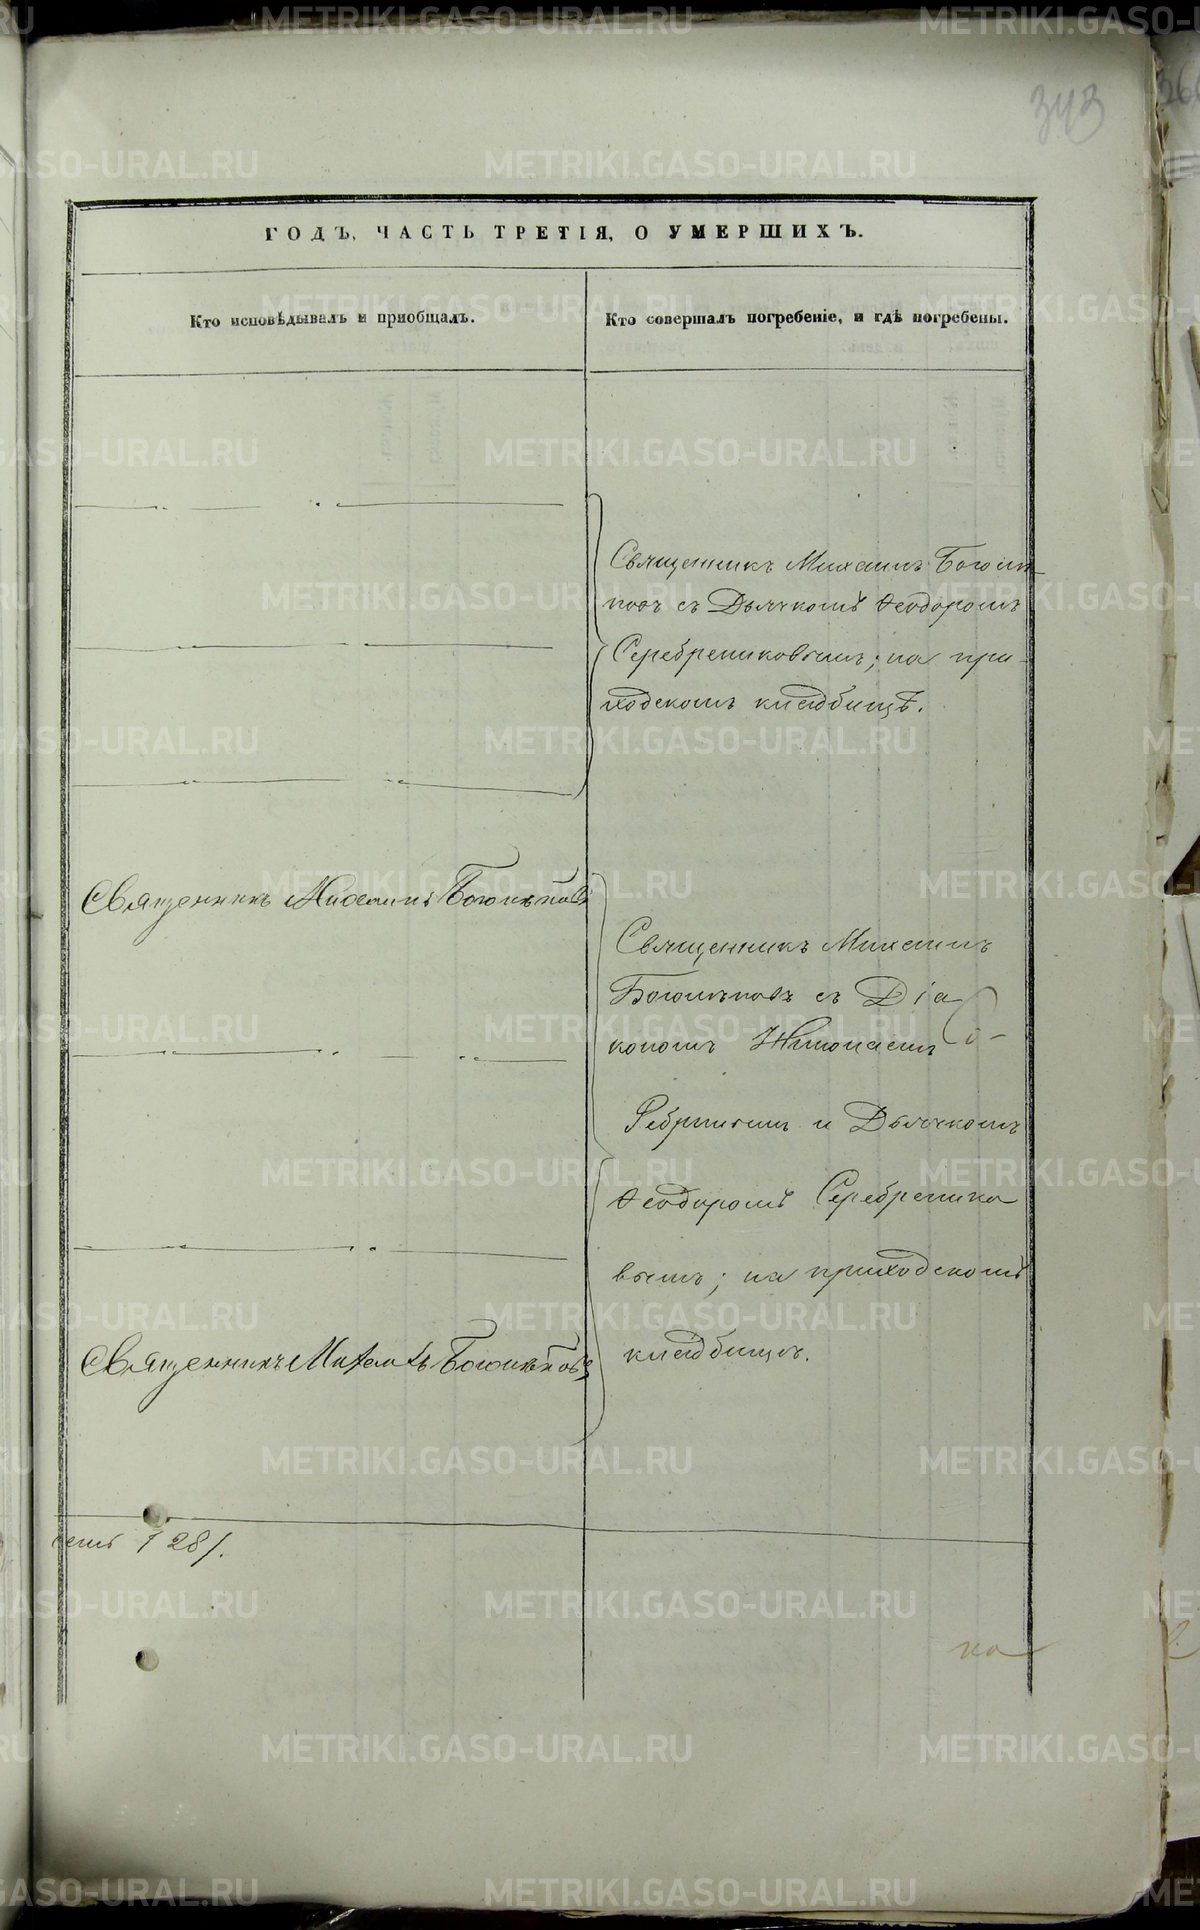 343
ГОДЪ, ЧАСТЬ ТРЕТІЯ, О УМЕРШИХЪ.
Кто исповѣдывалъ и пріобщалъ.
Кто совершалъ погребеніе, и гдѣ погребены.
Священникъ Михаилъ Боголѣ
повъ съ Дьячкомъ Ѳеодоромъ
Серебрениковымъ; на при-
ходскомъ кладбищѣ.
Священникъ Михаилъ Боголѣповъ
Священникъ Михаилъ
Боголѣповъ съ Діа
кономъ Николаемъ
и Дьячкомъ
Ѳеодоромъ Серебренико
вымъ; на приходскомъ
кладбищѣ.
Священникъ Михаилъ Боголѣповъ
281.
на
METRIKI.GASO-URAL.RU